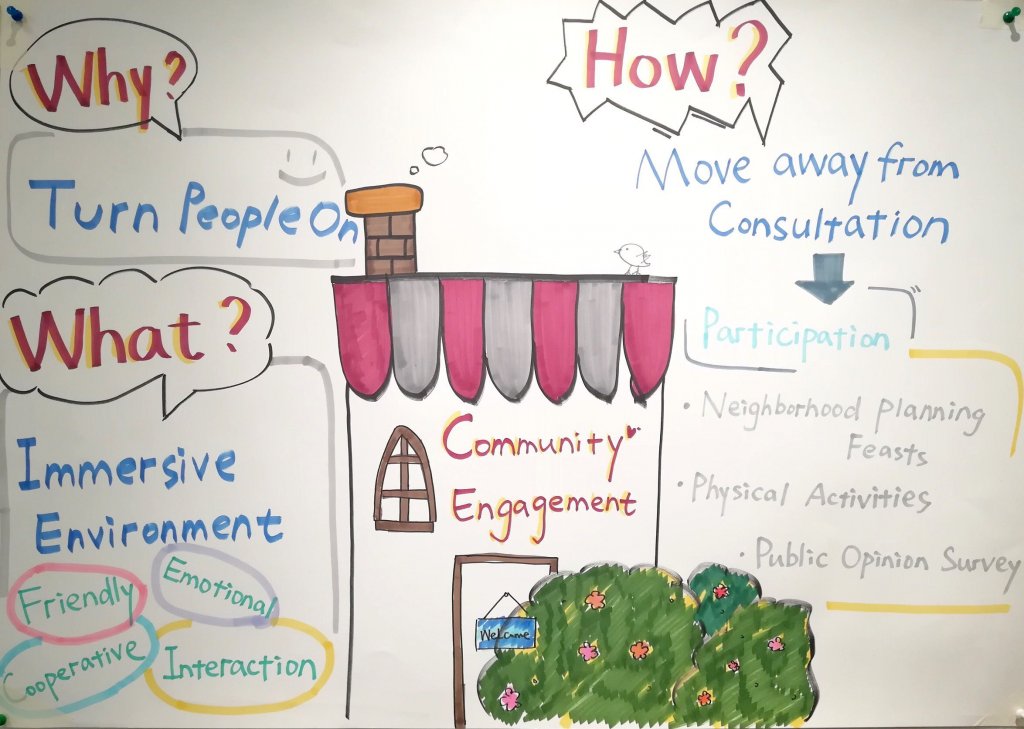 Why?
Turn People On
What?
Immersive
Environment
Friendly
Emotional
Cooperative
Interaction
Community
Engagement
Welcome
How?
Move away from
Consultation
Participation
• Neighborhood planning
Feasts
• Physical Activities
• Public Opinion Survey